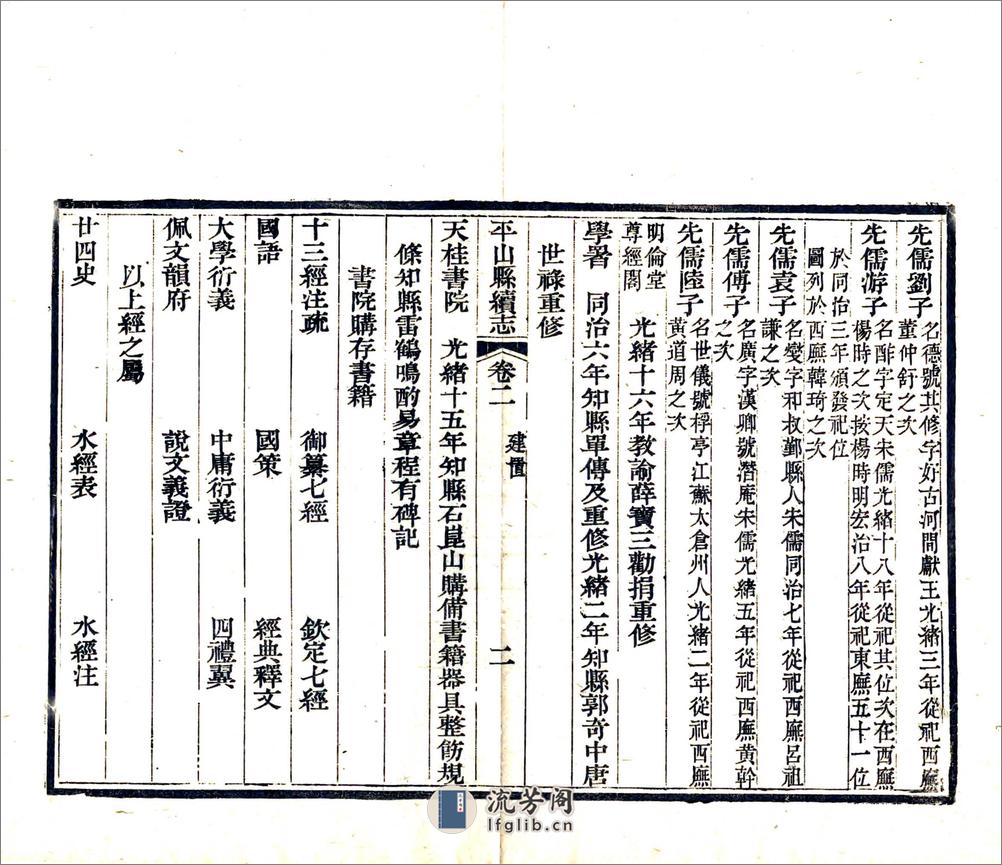 先儒劉子 名德號其修字好古河間獻王光緒三年從祀西廡
董仲舒之次
先儒游子 名酢字定夫宋儒光緒十八年從祀其位次在西廡
楊時之次按楊時明宏治八年從祀東廡五十一位
於同治三年頒發祀位
圖列於西廡韓琦之次
先儒袁子 名燮字和叔鄞縣人宋儒同治七年從祀西廡呂祖
謙之次
先儒傅子 名廣字漢卿號潛庵宋儒光緒五年從祀西廡黃幹
之次
先儒陸子 名世儀號桴亭江蘇太倉州人光緒二年從祀西廡
黃道周之次
明倫堂
尊經閣 光緒十六年教諭薛寶三勸捐重修
學署 同治六年知縣單傳及重修光緒二年知縣郭奇中唐
世祿重修
平山縣續志 卷二 建置 二
天桂書院 光緒十五年知縣石崑山購備書籍器具整飭規
條知縣雷鶴鳴酌易章程有碑記
書院購存書籍
十三經注疏 御纂七經 欽定七經
國語 國策 經典釋文
大學衍義 中庸衍義 四禮翼
佩文韻府 說文義證
以上經之屬
廿四史 水經表 水經注
流芳阁
lfglib.cn